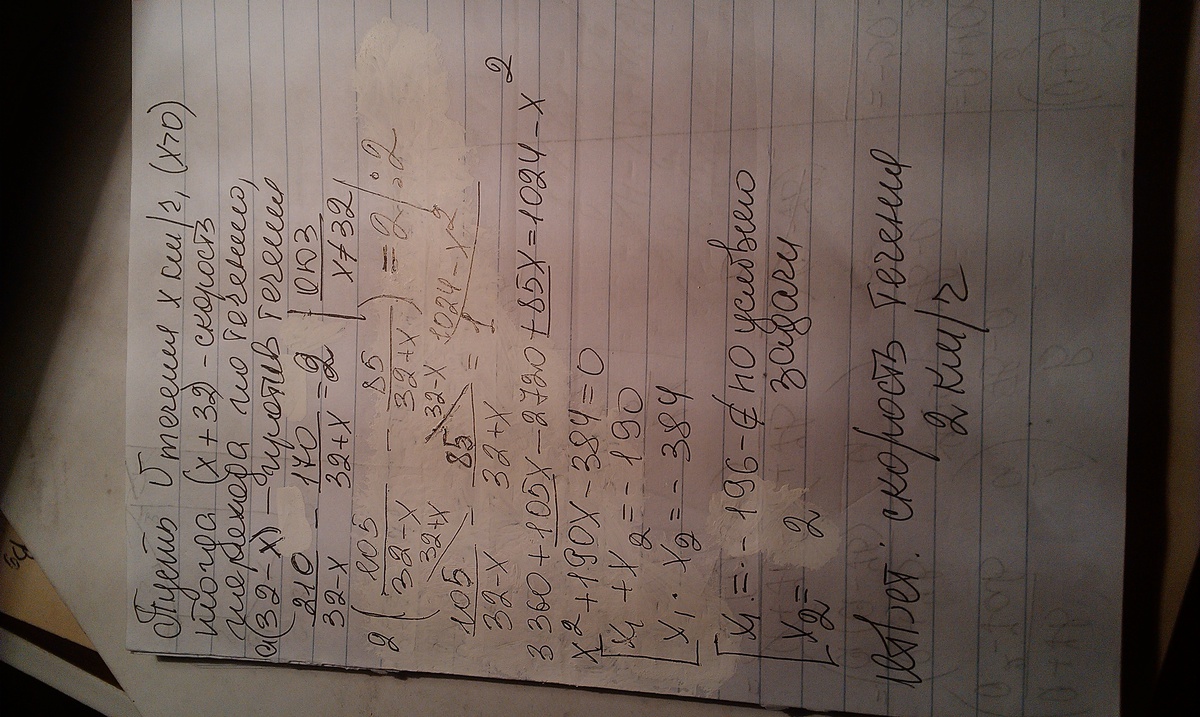 Пусть V течения x км/г, (x>0)
тогда (x+32) - скорость
парохода по течению,
а (32-x) - против течения
210/(32-x) - 170/(32+x) = 2 | ОКЗ x≠32
2(105/(32-x) - 85/(32+x)) = 2 | :2
105/(32-x) - 85/(32+x) = 1
32+x 32-x 1024-x²
3360+105x-2720+85x=1024-x²
x²+190x-384=0
[x₁+x₂=-190
[x₁·x₂=-384
[x₁=-196-∉ по условию
задачи
[x₂=2
Ответ: скорость течения
2 км/г